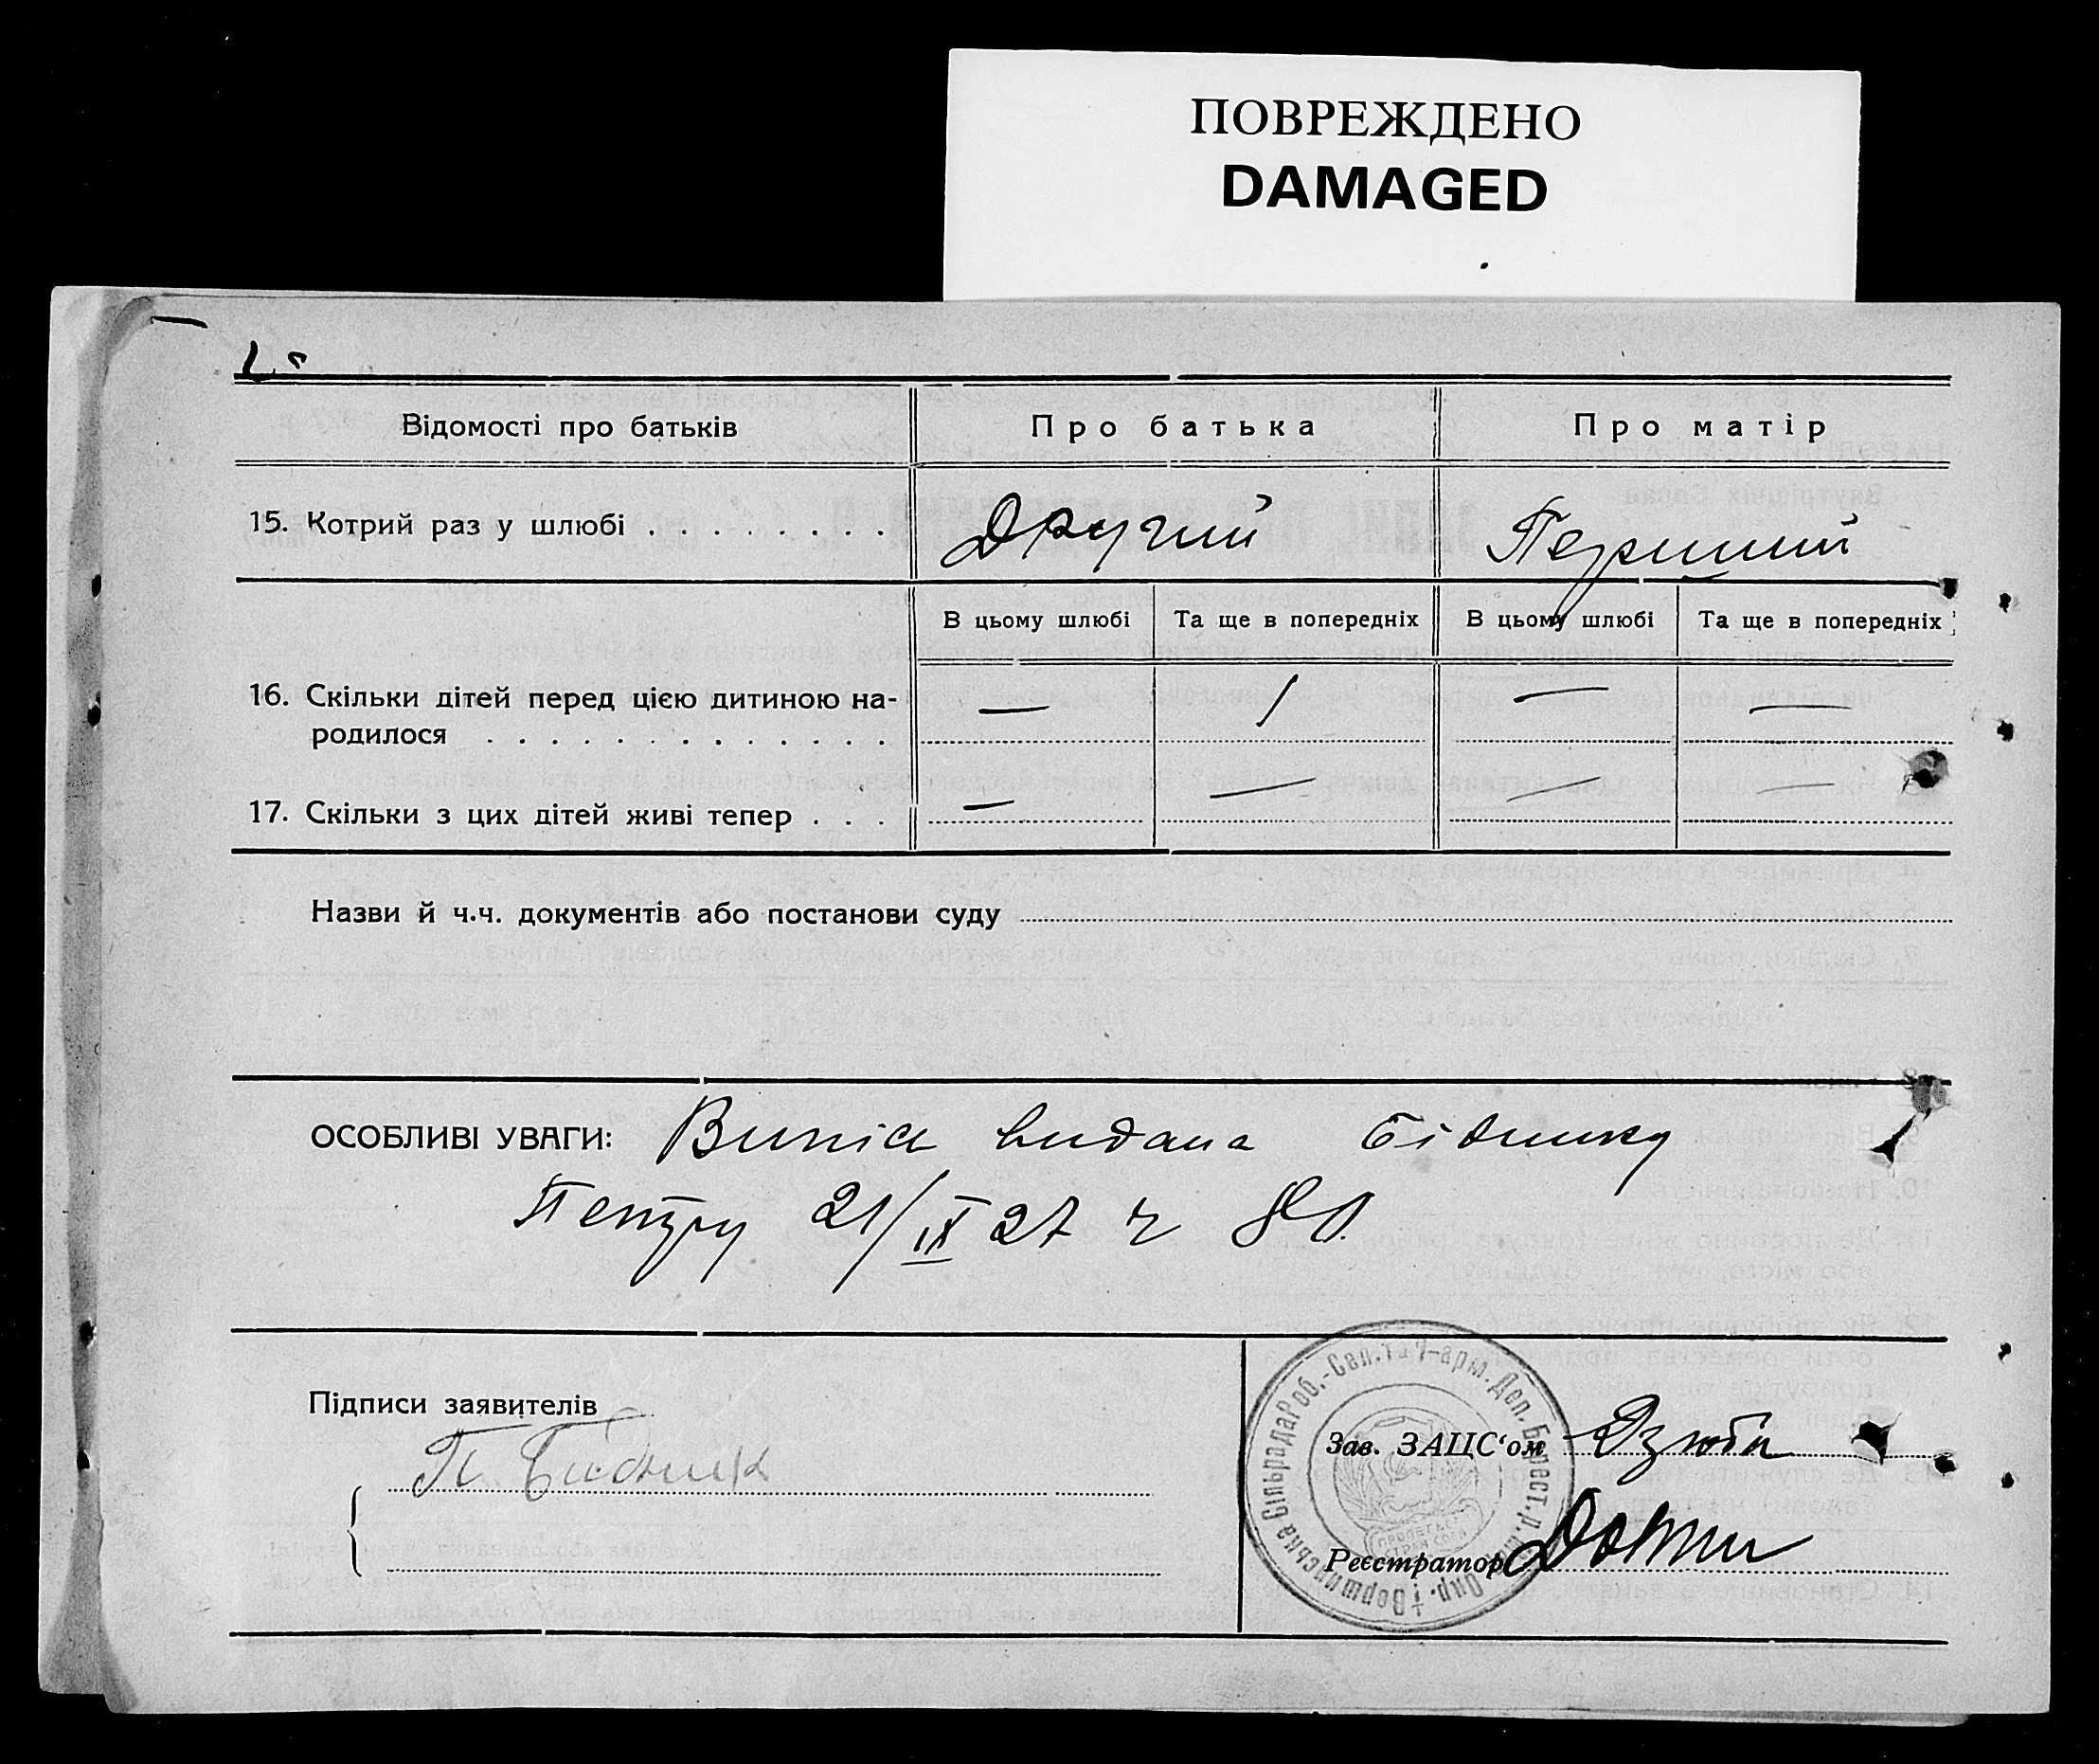 ПОВРЕЖДЕНО
DAMAGED
Відомості про батьків
Про батька
Про матір
15. Котрий раз у шлюбі
Другий
Перший
В цьому шлюбі
Та ще в попередніх
В цьому шлюбі
Та ще в попередніх
16. Скільки дітей перед цією дитиною на-
родилося
— 1 — —
17. Скільки з цих дітей живі тепер
— — — —
Назви й ч.ч. документів або постанови суду
ОСОБЛИВІ УВАГИ: Випіс видана Бідинку
Петру 21/IX 27 г
Підписи заявителів
П. Бидник
Зав. ЗАЦС'ом Дзюба
Реєстратор
Сільрада Роб.-Сел. та Ч-арм. Деп.